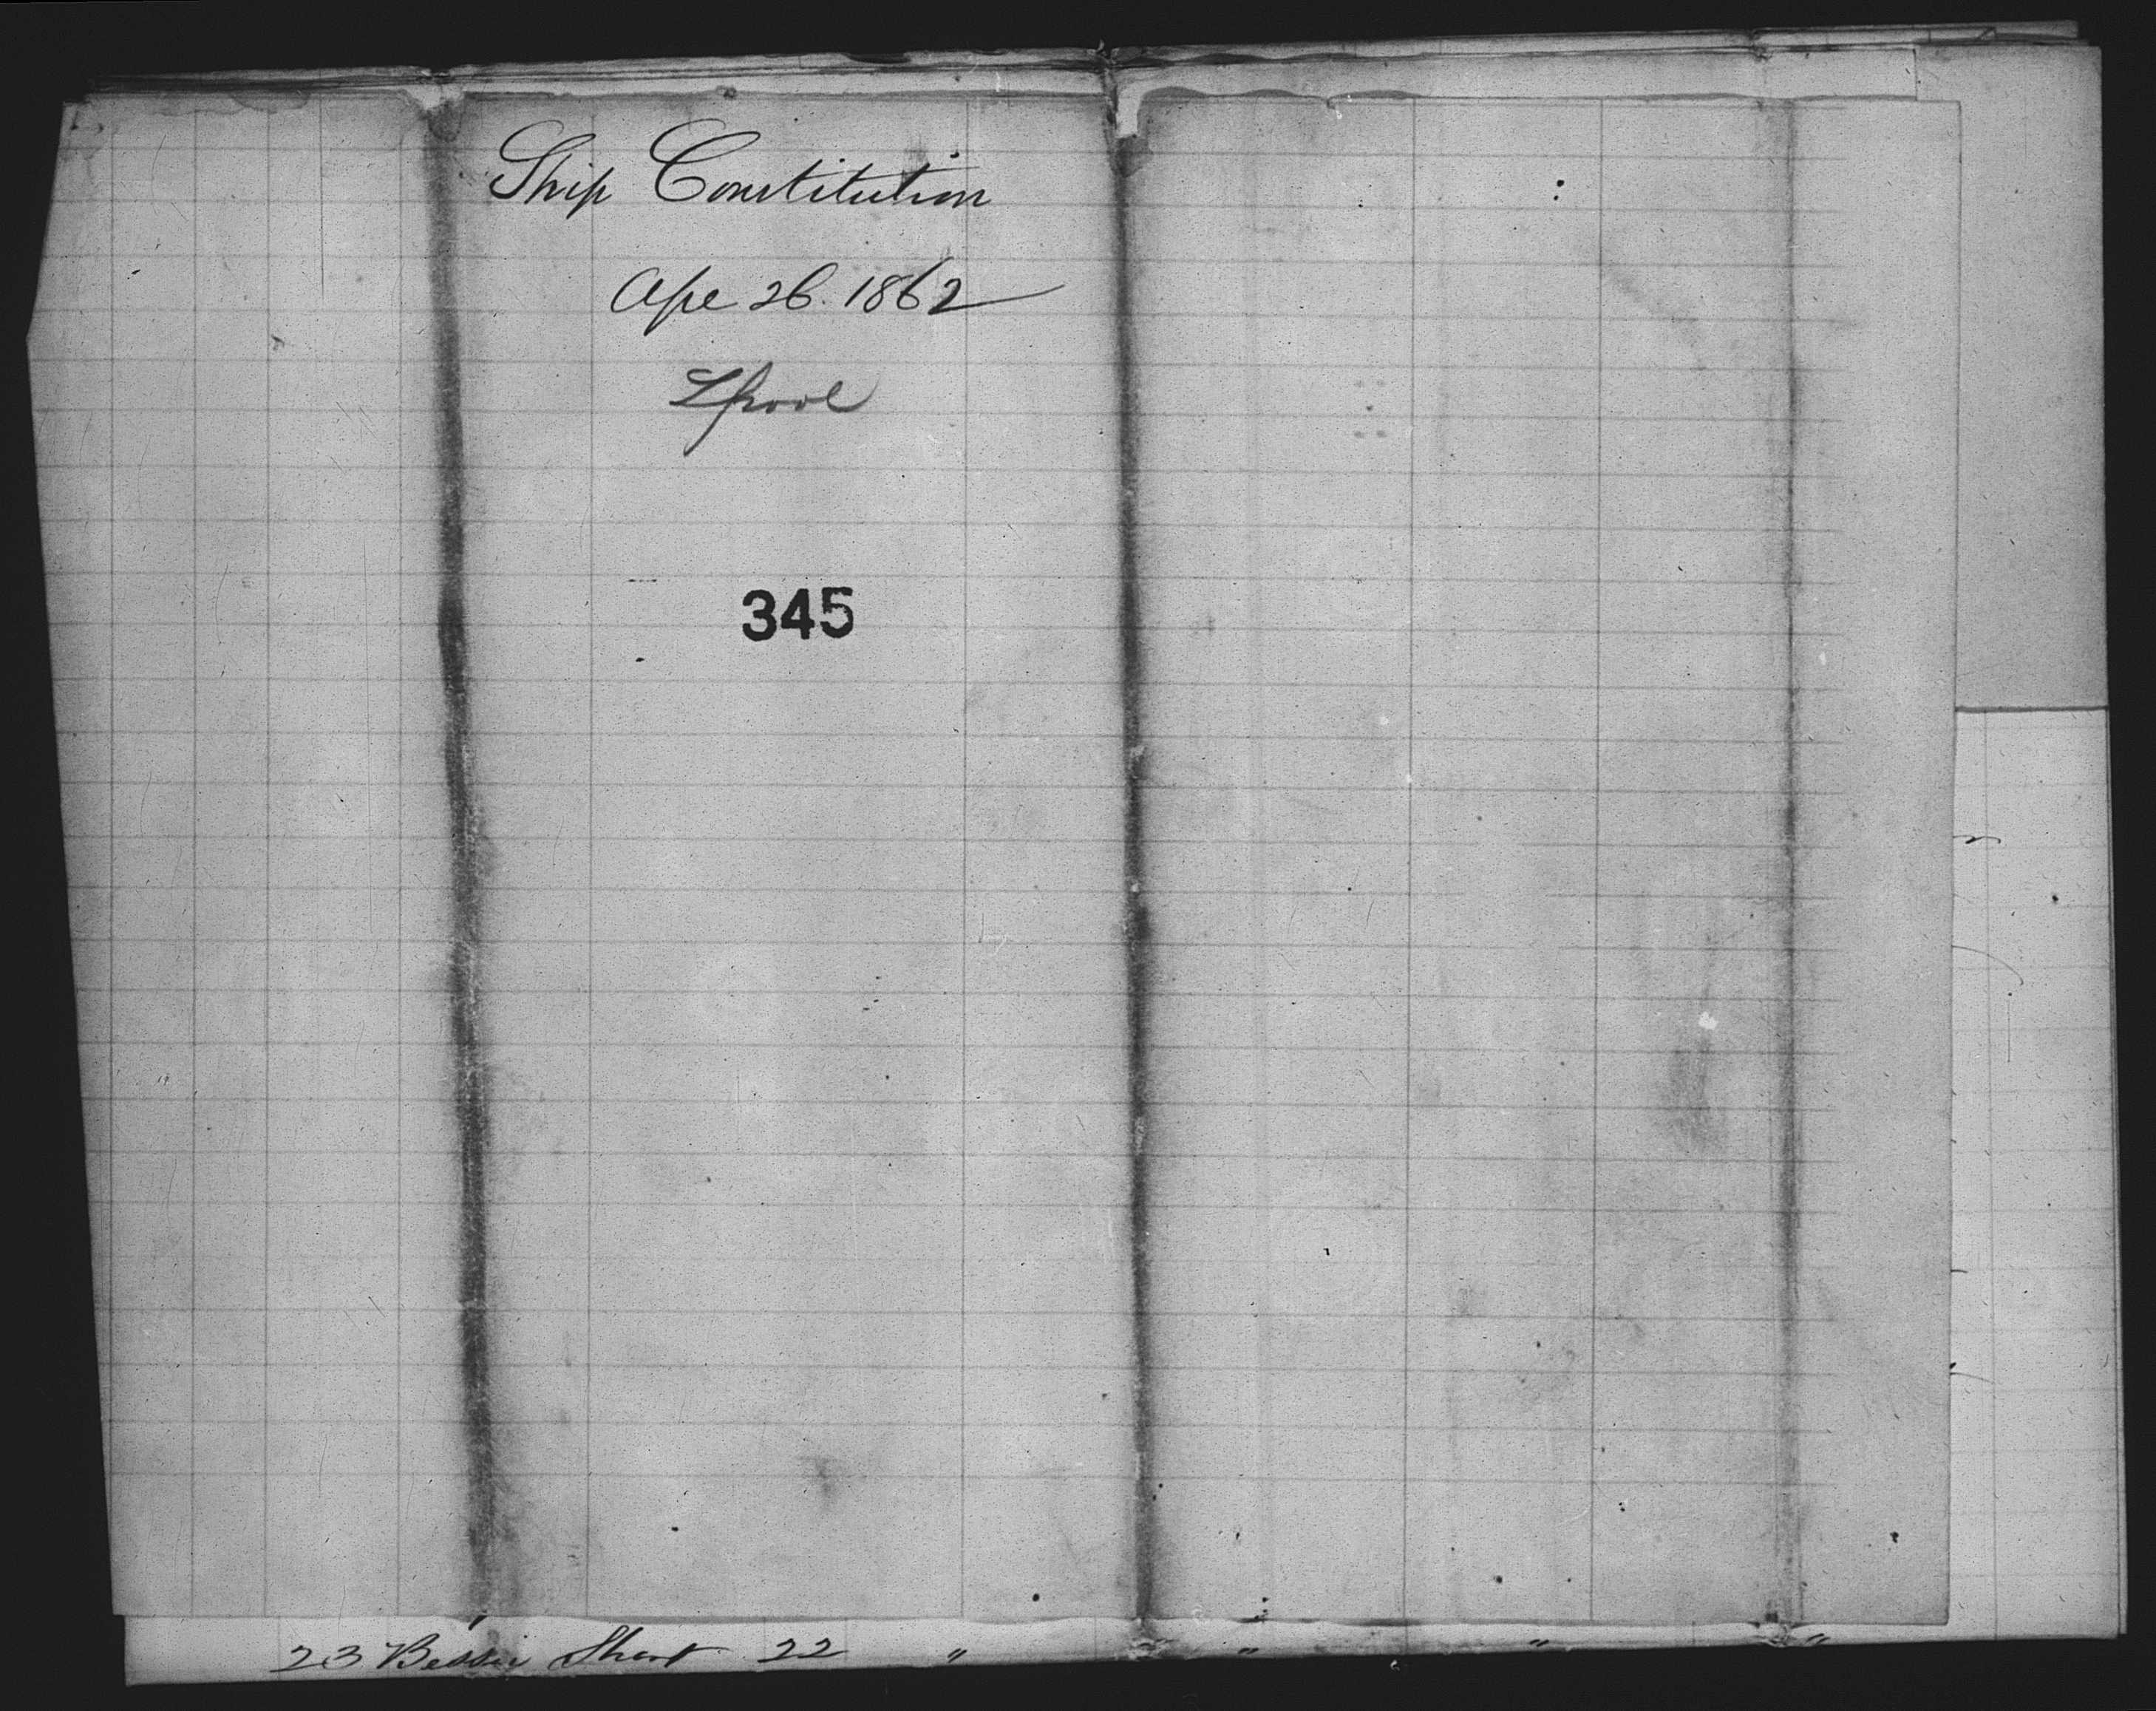 Ship Constitution
Apr 26. 1862
Lpool
345
23 Bessie Short 22 " " " "